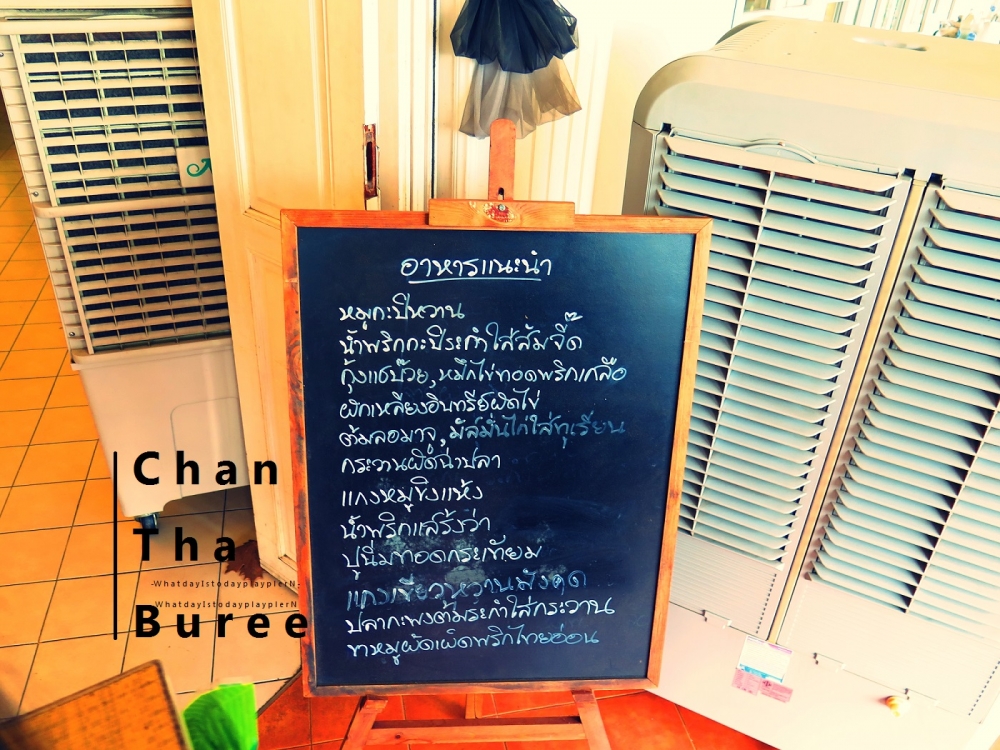 อาหารแนะนำ
หมูกะปิหวาน
น้ำพริกกะปิระกำใส่ส้มจี๊ด
กุ้งแช่บ๊วย,หมึกไข่ทอดพริกเกลือ
ผักเหลียงอินทรีย์ผัดไข่
ต้มลอมาจู,มัสมั่นไก่ใส่ทุเรียน
กระวานผัดฉ่าปลา
แกงหมูขิงแห้ง
น้ำพริกแสร้งว่า
ปูนิ่มทอดกระเทียม
แกงเขียวหวานมังคุด
ปลากะพงต้มระกำใส่กระวาน
ขาหมูผัดเผ็ดพริกไทยอ่อน
Chan
Tha
-WhatdayIstodayplaypIerN-
WhatdayIstodayplaypIerN
Buree